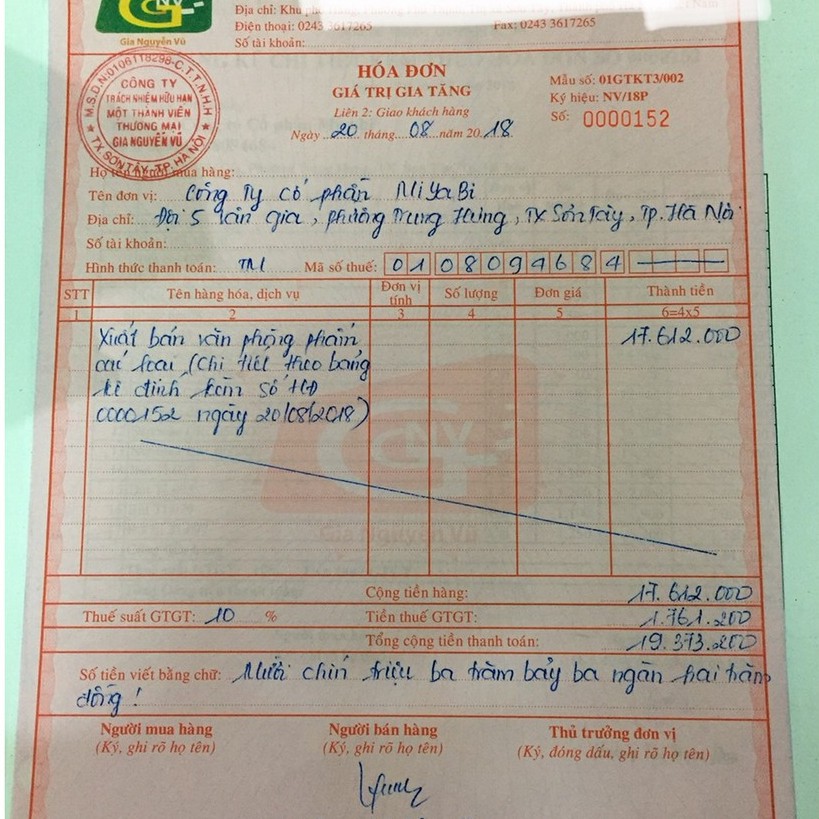 GNV
Gia Nguyễn Vũ
Địa chỉ: Khu phố
Điện thoại: 0243 3617265 Fax: 0243 3617265
Số tài khoản:
M.S.D.N:0106118298-C.T.T.N.H.H
CÔNG TY
TRÁCH NHIỆM HỮU HẠN
MỘT THÀNH VIÊN
THƯƠNG MẠI
GIA NGUYỄN VŨ
TX.SƠN TÂY-TP.HÀ NỘI
HÓA ĐƠN
GIÁ TRỊ GIA TĂNG
Liên 2: Giao khách hàng
Ngày 20 tháng 08 năm 20 18
Mẫu số: 01GTKT3/002
Ký hiệu: NV/18P
Số: 0000152
Họ tên người mua hàng:
Tên đơn vị: Công Ty cổ phần MiYaBi
Địa chỉ: Đội 5 Vân gia, phường Trung Hưng, TX Sơn Tây, Tp. Hà Nội
Số tài khoản:
Hình thức thanh toán: TM Mã số thuế: 0108094684
STT Tên hàng hóa, dịch vụ Đơn vị tính Số lượng Đơn giá Thành tiền
1 2 3 4 5 6=4x5
Xuất bán văn phòng phẩm 17.612.000
các loại (Chi tiết theo bảng
kê đính kèm số HĐ
0000152 ngày 20/08/2018)
GNV
Gia Nguyễn Vũ
Cộng tiền hàng: 17.612.000
Thuế suất GTGT: 10 % Tiền thuế GTGT: 1.761.200
Tổng cộng tiền thanh toán: 19.373.200
Số tiền viết bằng chữ: Mười chín triệu ba trăm bảy ba ngàn hai trăm
đồng!
Người mua hàng Người bán hàng Thủ trưởng đơn vị
(Ký, ghi rõ họ tên) (Ký, ghi rõ họ tên) (Ký, đóng dấu, ghi rõ họ tên)